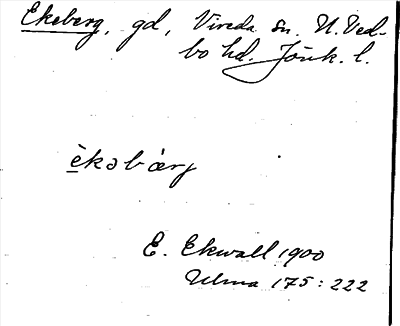 Ekeberg, gd, Vireda sn. N. Ved-
bo hd. Jönk. l.
èkəbærj
E. Ekwall 1900
Ulma 175:222